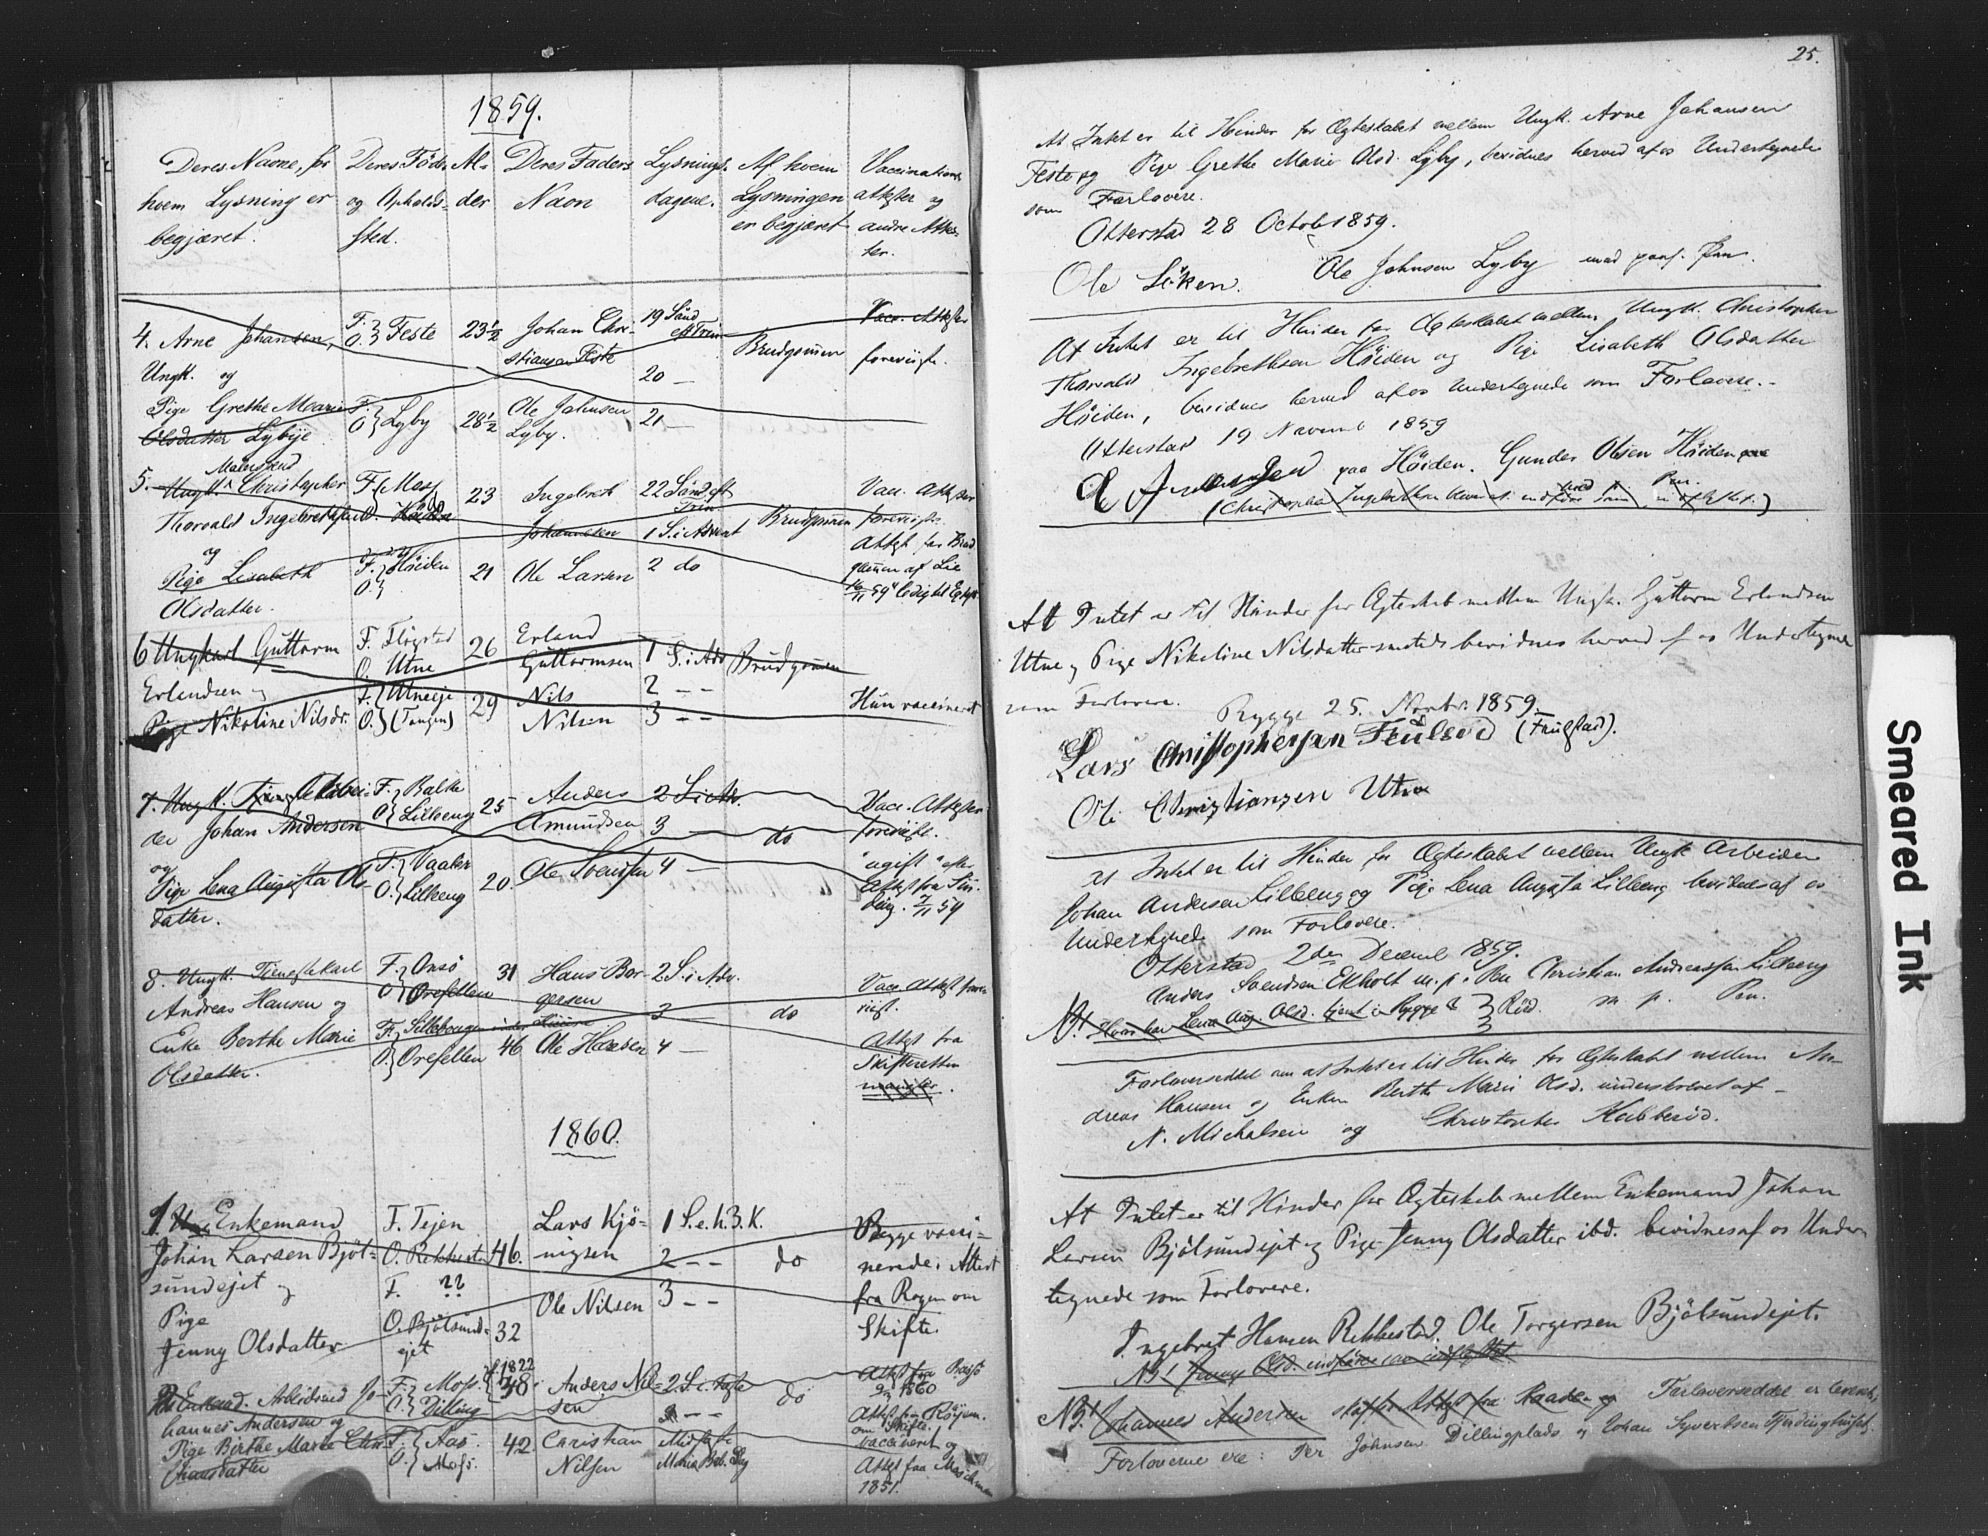 1859.
Deres Navne, for
hvem Lysning er
begjæret.
Deres Føde-
og Opholds-
sted.
Al-
der
Deres Faders
Navn
Lysnings-
dagene.
Af hvem
Lysningen
er begjæret
Vaccinations
attester og
andre Attes-
ter.
4. Arne Johansen,
Ungk. og
Pige Grethe Marie
Olsdatter Lybye
F. } Feste
O. }
F. } Lyby
O. }
23½
28½
Johan Chri-
stiansen Feste
Ole Johnsen
Lyby.
19 Sönd
eft Trin
20 —
21 —
Brudgommen
Vacc. Attester
foreviist.
5. Ungk. Christopher
Thorvald Ingebrethsen
og
Pige Lisabeth
Olsdatter.
F. Moss
O. Höiden
F. } Höiden
O. }
23
21
Ingebreth
Johannesen
Ole Larsen
22 Sönd. eft
Trin
1 S. i Advent
2 do
Brudgommen
Vacc. Attester
foreviist
Attest for Brud
gommen af Lie
16/11 59 "ledig til Egtesk.
6 Ungkarl Guttorm
Erlandsen og
Pige Nikoline Nilsdr.
F. Flögstad
O. Utne
F. } Utneeje
O. } (Tangen)
26
29
Erland
Guttormsen
Nils
Nilsen
1 S. i Adv
2 — —
3 — —
Brudgommen
Hun vaccineret
7. Ungk. Arbei-
der Johan Andersen
og
Pige Lena Augusta Ols-
datter.
F. } Balke
O. } Lilleeng
F. } Vaaler
O. } Lilleeng
25
20.
Anders
Amundsen
Ole Svendsen
2 S. i Adv.
3 —
4 —
do
Vacc. Attester
foreviist.
"ugift" efter
Attest fra
7/11 59
8. Ungk. Tienestekarl
Andreas Hansen og
Enke Berthe Marie
Olsdatter.
F. } Onsö
O. } Orefellen
F. }
O. } Orefellen
31
46
Hans Bor-
gersen
Ole Hansen
2 S. i Adv.
3 —
4 —
do
Vacc. Attest fore-
viist.
Attest fra
Skifteretten
mangler.
1860.
1. Enkemand
Johan Larsen Bjöl-
sundejet og
Pige
Jenny Olsdatter
F. Tejen
O. Rekkestad
F. ??
O. Bjölsund-
ejet
46.
32
Lars Kjö-
nigsen
Ole Nilsen
1 S. e. h. 3. K.
2 — —
3 — —
do
Begge vacci-
nerede. Attest
fra Rogen om
Skifte.
2. Enkemd. Arbeidsmd Jo-
hannes Andersen og
Pige Berthe Marie Chri-
stiansdatter
F. } Moss.
O. } Dilling
F. } Aas.
O. } Moss.
f. 1822
48
42
Anders Nil-
sen
Christian
Nilsen
2. S. i Faste
3 — —
Midfaste
Maria Beb. Dg
do
Attest fra Bastö
1860
Attest fra Röyem.
om Skifte.
vaccineret og
Attest fra
1851.
25.
At Intet er til Hinder for Ægteskabet mellem Ungk. Arne Johansen
Feste og Pige Grethe Marie Olsd. Lyby, bevidnes herved af os Undertegnede
som Forlovere.
Otterstad 28 Octob 1859.
Ole Löken. Ole Johnsen Lyby med paaf. Pen.
At Intet er til Hinder for Ægteskabet mellem Ungk. Christopher
Thorvald Ingebrethsen Höiden og Pige Lisabeth Olsdatter
Höiden, bevidnes herved af os Undertegnede som Forlovere. -
Otterstad 19 Novemb 1859
paa Höiden. Gunder Olsen Höiden
Pen.
At Intet er til Hinder for Ægteskab mellem Ungk. Guttorm Erlandsen
Utne og Pige Nikoline Nilsdatter smsteds bevidnes herved af os Undertegnede
som Forlovere.
Rygge 25. Novbr. 1859
Lars Christophersen Feulsrød (Fuglstad).
Ole Christiansen Utne
At Intet er til Hinder for Ægteskabet mellem Ungk Arbeider
Johan Andersen Lilleeng og Pige Lena Augusta Lilleeng bevidnes af os
Undertegnede som Forlovere.
Otterstad 2den Decemb 1859.
Anders Svendsen Ekholt m. p. Pen Christian Andreassen Lilleeng
m. p. Pen.
NB! Hvor har Lena Aug. Olsd. tjent i Rygge & Röd.
Forloverseddel om at Intet er til Hinder for Ægteskabet mellem An-
dreas Hansen og Enken Berthe Marie Olsd. underskrevet af
N. Michalsen og Christopher Kubberöd.
At Intet er til Hinder for Ægteskab mellem Enkemand Johan
Larsen Bjölsundejet og Pige Jenny Olsdatter ibd. bevidnes af os Under-
tegnede som Forlovere.
Ingebret Hansen Rekkestad. Ole Torgersen Bjölsundejet.
NB! Jenny Olsd.
NB! Johannes Andersen skaffer Attest fra Raaden og Forloverseddel er leveret,
Forloverne ere: Per Johnsen Dillingplads og Johan Syvertsen
Smeared Ink